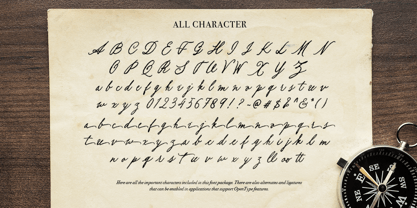 ALL CHARACTER
A B C D E F G H I J K L M N
O P Q R S T U V W X Y Z
a b c d e f g h i j k l m n o p q r s t u v
w x y z 0123456789!?~@#$&^&*()
a b c d e f g h i j k l m n o p q r s
t u v w x y z a b c d e f g h i j k l m
n o p q r s t u v w x y z
Here are all the important characters included in this font package. There are also alternates and ligatures
that can be enabled in applications that support OpenType features.
E
S